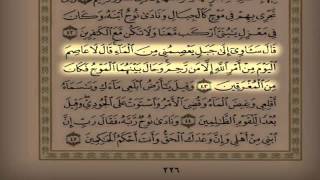 تَجْرِى بِهِمْ فِى مَوْجٍ كَٱلْجِبَالِ وَنَادَىٰ نُوحٌ ٱبْنَهُۥ وَكَانَ
فِى مَعْزِلٍ يَـٰبُنَىَّ ٱرْكَب مَّعَنَا وَلَا تَكُن مَّعَ ٱلْكَـٰفِرِينَ ٤٢
قَالَ سَـَٔاوِىٓ إِلَىٰ جَبَلٍ يَعْصِمُنِى مِنَ ٱلْمَآءِ قَالَ لَا عَاصِمَ
ٱلْيَوْمَ مِنْ أَمْرِ ٱللَّهِ إِلَّا مَن رَّحِمَ وَحَالَ بَيْنَهُمَا ٱلْمَوْجُ فَكَانَ
مِنَ ٱلْمُغْرَقِينَ ٤٣ وَقِيلَ يَـٰٓأَرْضُ ٱبْلَعِى مَآءَكِ وَيَـٰسَمَآءُ
أَقْلِعِى وَغِيضَ ٱلْمَآءُ وَقُضِىَ ٱلْأَمْرُ وَٱسْتَوَتْ عَلَى ٱلْجُودِىِّ وَقِيلَ
بُعْدًا لِّلْقَوْمِ ٱلظَّـٰلِمِينَ ٤٤ وَنَادَىٰ نُوحٌ رَّبَّهُۥ فَقَالَ رَبِّ إِنَّ
ٱبْنِى مِنْ أَهْلِى وَإِنَّ وَعْدَكَ ٱلْحَقُّ وَأَنتَ أَحْكَمُ ٱلْحَـٰكِمِينَ ٤٥
٢٢٦